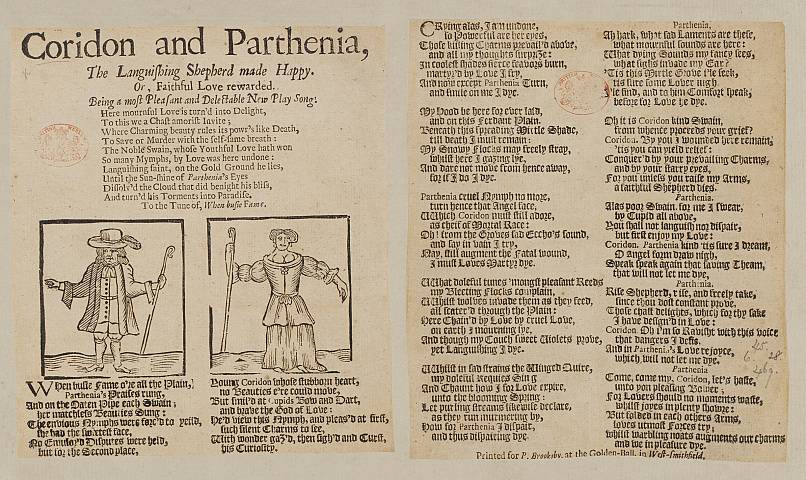 Coridon and Parthenia,
The Languiſhing Shepherd made Happy.
Or, Faithful Love rewarded.
Being a moſt Pleaſant and Delectable New Play Song.
Here mournful Love is turn'd into Delight,
To this we a Chaſt amoriſt Invite;
Where Charming beauty rules its powr's like Death,
To Save or Murder with the ſelf-ſame breath:
The Noble Swain, whoſe Youthful Love hath won
So many Nymphs, by Love was here undone:
Languiſhing faint, on the Gold Ground he lies,
Until the Sun-ſhine of Parthenia's Eyes
Diſſolv'd the Cloud that did benight his bliſs,
And turn'd his Torments into Paradiſe.
To the Tune of, When buſie Fame.
WHen buſie Fame o're all the Plain,
Parthenia's Praiſes rung,
And on the Oaten Pipe each Swain,
her matchleſs Beauties Sung:
The envious Nymphs were forc'd to yeild,
ſhe had the ſweeteſt face,
No Emulous Diſputes were held,
but for the Second place,
Young Coridon whoſe ſtubborn heart,
no Beauties e're could move,
But ſmil'd at Cupids Bow and Dart,
and brav'd the God of Love:
He'd view this Nymph, and pleas'd at firſt,
ſuch ſilent Charms to ſee,
With wonder gaz'd, then ſigh'd and Curſt,
his Curioſity.
CRying alas, I am undone,
ſo Powerful are her eyes,
Thoſe killing Charms prevail'd above,
and all my thoughts ſurprize:
In cooleſt ſhades fierce feavors burn,
martyr'd by Love I fry,
And now except Parthenia Turn,
and ſmile on me I dye.
My Hook be here for ever laid,
and on this Verdant Plain.
Beneath this ſpreading Mirtle Shade,
till death I muſt remain:
My Snowy Flocks may freely ſtray,
whilſt here I gazing lye,
And dare not move from hence away,
for if I do I dye.
Parthenia cruel Nymph no more,
turn hence that Angel face,
Which Coridon muſt ſtill adore,
as cheif of Mortal Race:
Oh! from the Groves ſad Eccho's ſound,
and ſay in vain I try,
Nay, ſtill augment the Fatal wound,
I muſt Loves Martyr dye.
What doleful tunes 'mongſt pleaſant Reeds
my Bleeting Flocks complain,
Whilſt wolves invade them as they feed,
all ſcater'd through the Plain:
Here Chain'd by Love by cruel Love,
on earth I mourning lye,
And though my Couch ſweet Violets prove,
yet Languiſhing I dye.
Whilſt in ſad ſtrains the Winged Quire,
my doleful Requies Sing
And Chaunt how I for Love expire,
unto the blooming Spring:
Let purling ſtreams likewiſe declare,
as they run murmering by,
How for Parthenia I diſpair,
and thus diſpairing dye.
Parthenia,
Ah hark, what ſad Laments are theſe,
what mournful ſounds are here:
What dying Sounds my fancy ſees,
what ſighs invade my Ear?
'Tis this Mirtle Grove i'le ſeek,
'tis ſure ſome Lover nigh
I'le find, and to him Comfort ſpeak,
before for Love he dye.
Oh it is Coridon kind Swain,
from whence proceeds your grief?
Coridon. By you I wounded here remain,
'tis you can yield relief:
Conquer'd by your prevailing Charms,
and by your ſtarry eyes,
For you unleſs you raiſe my Arms,
a faithful Shepherd dies.
Parthenia.
Alas poor Swain for me I ſwear,
by Cupid all above,
You ſhall not languiſh nor diſpair,
but firſt enjoy my Love:
Coridon. Parthenia kind 'tis ſure I dreamt,
O Angel form draw nigh,
Speak ſpeak again that ſaving Theam,
that will not let me dye,
Parthenia.
Riſe Shepherd, riſe, and freely take,
ſince thou doſt conſtant prove,
Thoſe chaſt delights, which for thy ſake
I have deſign'd in Love:
Coridon. Oh I'm ſo Raviſht with this voice
that dangers I defis.
And in Parthenia's Love rejoyce,
which will not let me dye.
Parthenia
Come, come my, Coridon, let's haſte,
unto you pleaſing Bower;
For Lovers ſhould no moments waſte,
whilſt joyes in plenty ſhowre:
But folded in each others Arms,
loves utmoſt Forces try;
whilſt warbling noats augments our charms
and we in pleaſure dye.
Printed for P. Brooksby, at the Golden-Ball, in Weſt-ſmithfield,